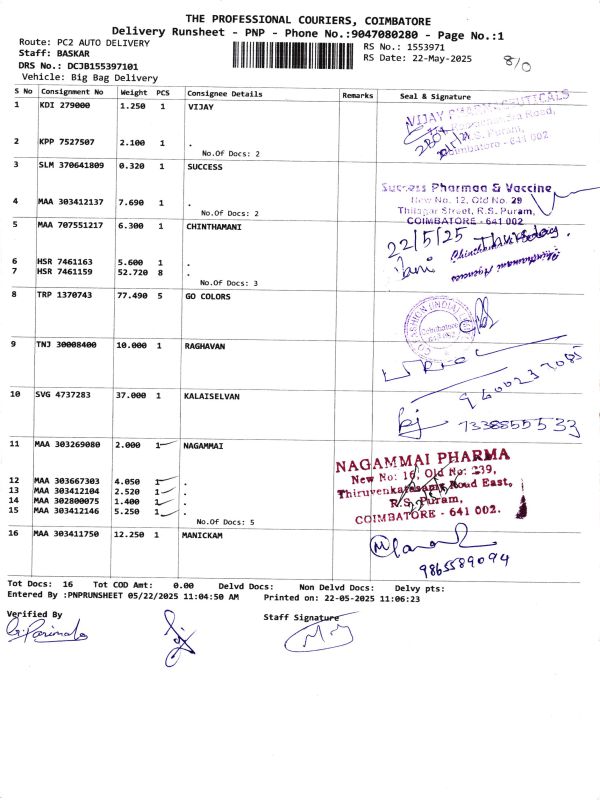 THE PROFESSIONAL COURIERS, COIMBATORE
Delivery Runsheet - PNP - Phone No.:9047080280 - Page No.:1
Route: PC2 AUTO DELIVERY
RS No.: 1553971
Staff: BASKAR
RS Date: 22-May-2025
8/0
DRS No.: DCJB155397101
Vehicle: Big Bag Delivery
S No Consignment No Weight PCS Consignee Details Remarks Seal & Signature
1 KDI 279000 1.250 1 VIJAY
VIJAY PHARMACEUTICALS
R.S. Puram,
Coimbatore - 641 002
2 KPP 7527507 2.100 1 .
No.Of Docs: 2
3 SLM 370641809 0.320 1 SUCCESS
Success Pharma & Vaccine
New No. 12, Old No. 29
Thilagar Street, R.S. Puram,
COIMBATORE - 641 002
4 MAA 303412137 7.690 1 .
No.Of Docs: 2
5 MAA 707551217 6.300 1 CHINTHAMANI
22/5/25 Thursday
Chinthamani Agencies
6 HSR 7461163 5.600 1 .
7 HSR 7461159 52.720 8 .
No.Of Docs: 3
8 TRP 1370743 77.490 5 GO COLORS
GO FASHION (INDIA)
Coimbatore
9 TNJ 30008400 10.000 1 RAGHAVAN
10 SVG 4737283 37.000 1 KALAISELVAN
11 MAA 303269080 2.000 1 NAGAMMAI
NAGAMMAI PHARMA
New No: 16, Old No: 239,
Thiruvenkatasamy Road East,
R.S. Puram,
COIMBATORE - 641 002.
12 MAA 303667303 4.050 1 .
13 MAA 303412104 2.520 1 .
14 MAA 302800075 1.400 1 .
15 MAA 303412146 5.250 1 .
No.Of Docs: 5
16 MAA 303411750 12.250 1 MANICKAM
9865589094
Tot Docs: 16 Tot COD Amt: 0.00 Delvd Docs: Non Delvd Docs: Delvy pts:
Entered By :PNPRUNSHEET 05/22/2025 11:04:50 AM Printed on: 22-05-2025 11:06:23
Verified By
Staff Signature